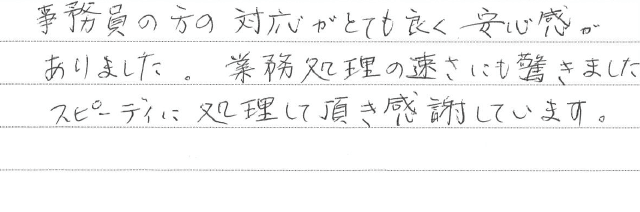 事務員の方の対応がとても良く安心感が
ありました。業務処理の速さにも驚きました
スピーディに処理して頂き感謝しています。